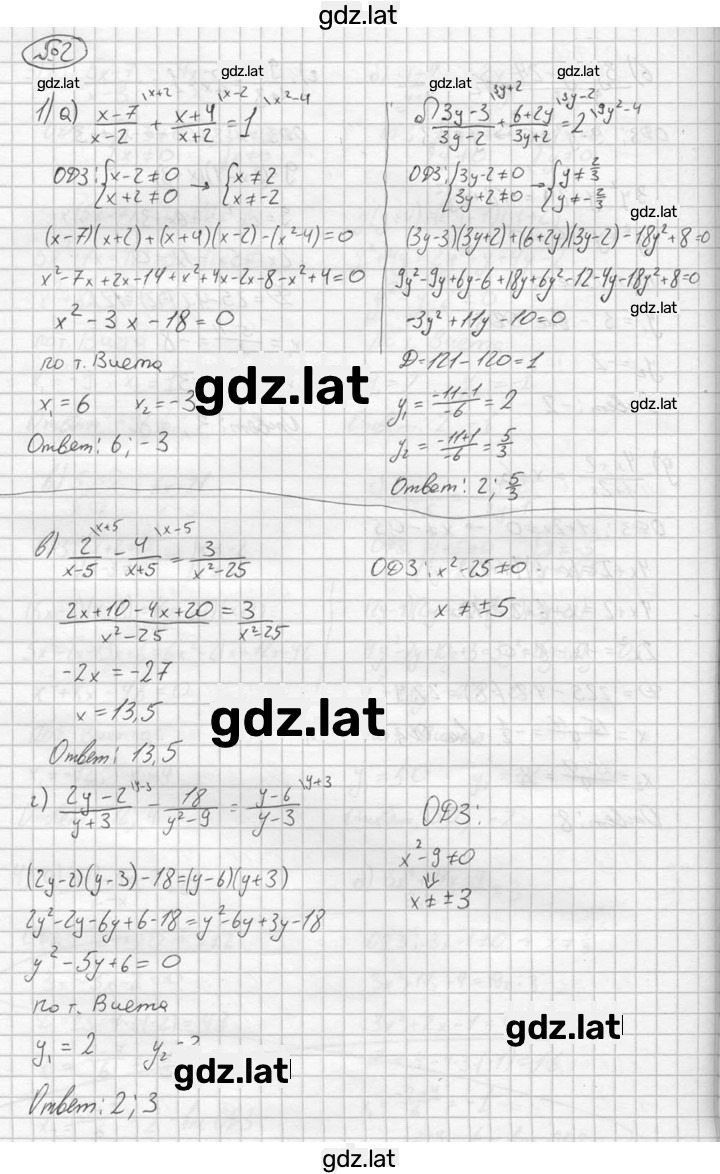 gdz.lat
№2
gdz.lat gdz.lat gdz.lat gdz.lat
1) а) \frac{x-7}{x-2}^{\x+2} + \frac{x+4}{x+2}^{\x-2} = 1^{\x²-4}
ОДЗ: {x-2≠0 → {x≠2
{x+2≠0 {x≠-2
(x-7)(x+2)+(x+4)(x-2)-(x²-4)=0
x²-7x+2x-14+x²+4x-2x-8-x²+4=0
x²-3x-18=0
по т. Виета
x₁=6 x₂=-3
Ответ: 6; -3
gdz.lat
б) \frac{3y-3}{3y-2}^{\3y+2} + \frac{6+2y}{3y+2}^{\3y-2} = 2^{\9y²-4}
ОДЗ: {3y-2≠0 → {y≠\frac{2}{3}
{3y+2≠0 {y≠-\frac{2}{3}
gdz.lat
(3y-3)(3y+2)+(6+2y)(3y-2)-18y²+8=0
9y²-9y+6y-6+18y+6y²-12-4y-18y²+8=0
gdz.lat
-3y²+11y-10=0
D=121-120=1
y₁=\frac{-11-1}{-6}=2
gdz.lat
y₂=\frac{-11+1}{-6}=\frac{5}{3}
Ответ: 2; \frac{5}{3}
в) \frac{2}{x-5}^{\x+5} - \frac{4}{x+5}^{\x-5} = \frac{3}{x²-25}
ОДЗ: x²-25≠0
x≠±5
\frac{2x+10-4x+20}{x²-25} = \frac{3}{x²-25}
-2x=-27
x=13,5
gdz.lat
Ответ: 13,5
г) \frac{2y-2}{y+3}^{\y-3} - \frac{18}{y²-9} = \frac{y-6}{y-3}^{\y+3}
ОДЗ:
x²-9≠0
⇓
x≠±3
(2y-2)(y-3)-18=(y-6)(y+3)
2y²-2y-6y+6-18=y²-6y+3y-18
y²-5y+6=0
по т. Виета
gdz.lat
y₁=2 y₂
gdz.lat
Ответ: 2; 3
gdz.lat